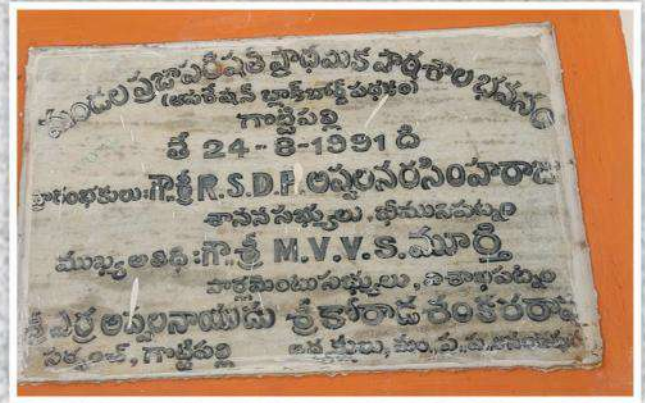 మండల ప్రజాపరిషత్ ప్రాథమిక పాఠశాల భవనం
(ఆపరేషన్ బ్లాక్‌బోర్డ్ పథకం)
గొట్టిపల్లి
తే 24-8-1991 ది
ప్రారంభకులు:గౌ.శ్రీ R.S.D.P. అప్పలనరసింహరాజు
శాసన సభ్యులు, భీమునిపట్నం
ముఖ్య అతిథి :గౌ..శ్రీ M.V.V.S.మూర్తి
పార్లమెంటుసభ్యులు, విశాఖపట్నం
శ్రీ ఎర్ర అప్పలనాయుడు శ్రీ కోరాడ శంకరరావు
సర్పంచ్, గొట్టిపల్లి అధ్యక్షులు, మం.ప.ప.